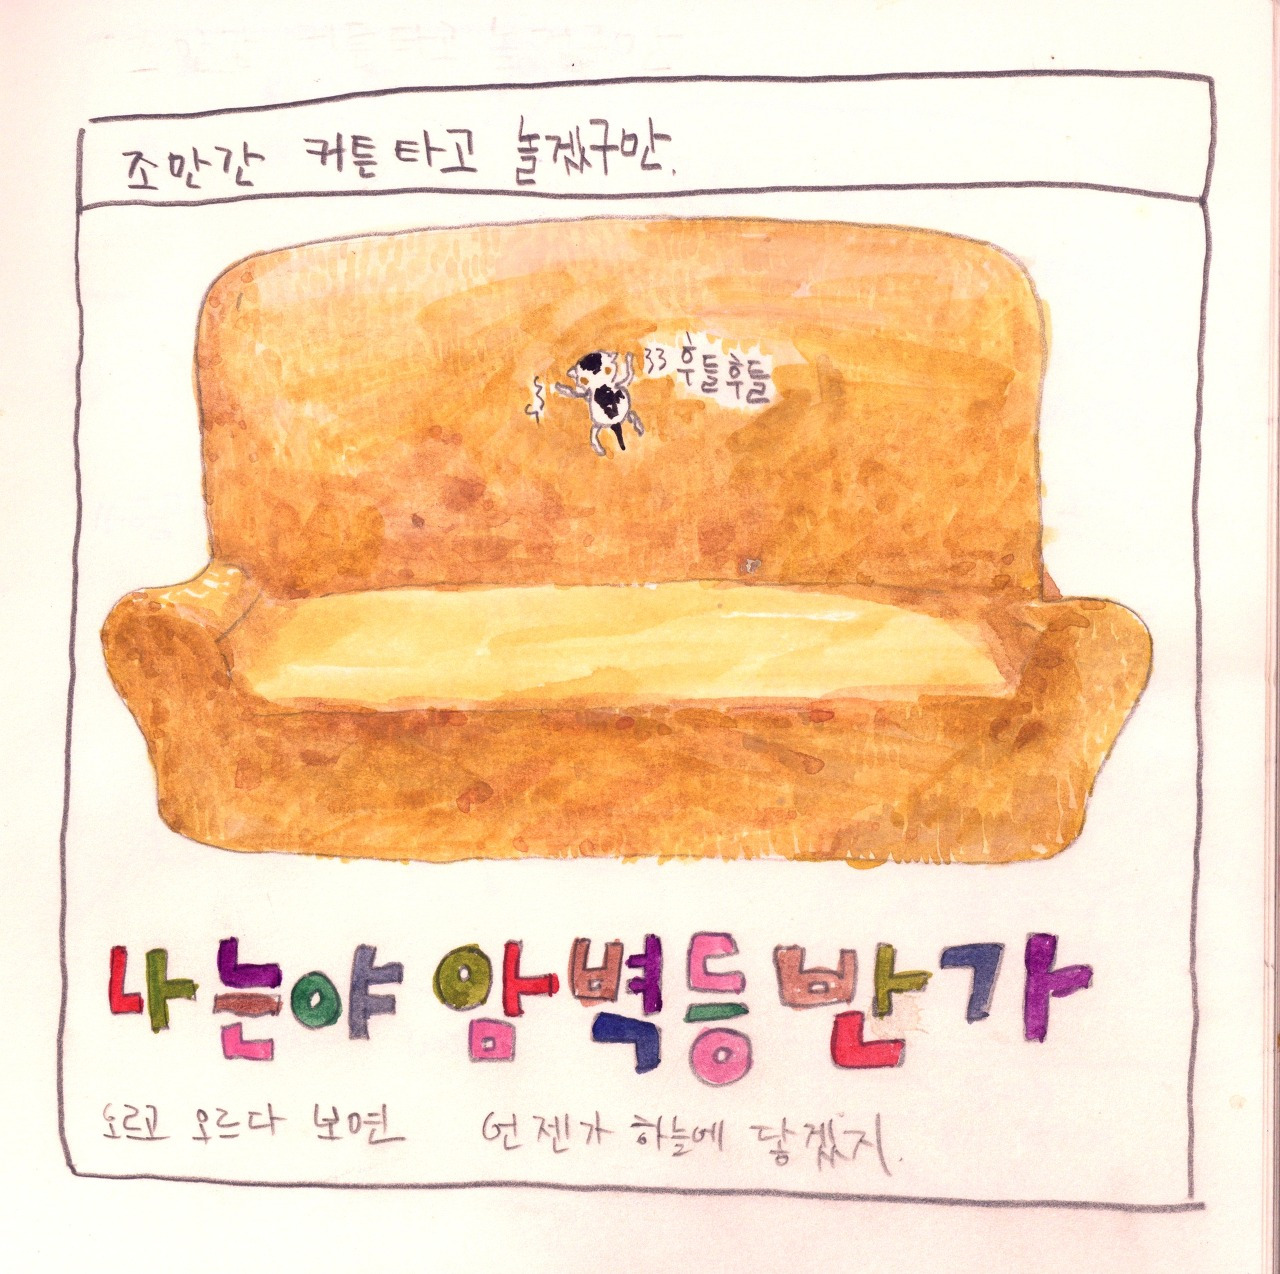 조만간 커튼타고 놀겠구만.
후들후들
나는야 암벽등반가
오르고 오르다 보면 언젠가 하늘에 닿겠지.